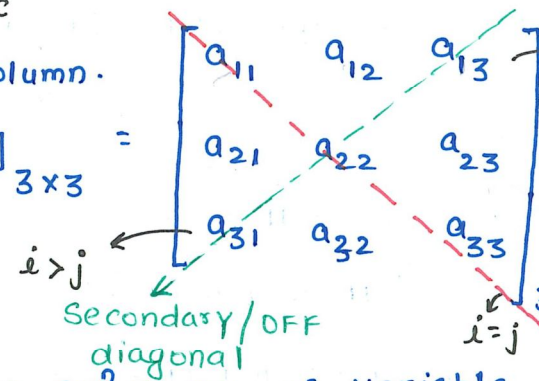 c
olumn.
a11 a12 a13
] 3×3 = a21 a22 a23
a31 a32 a33
i>j
i=j
Secondary/OFF
diagonal